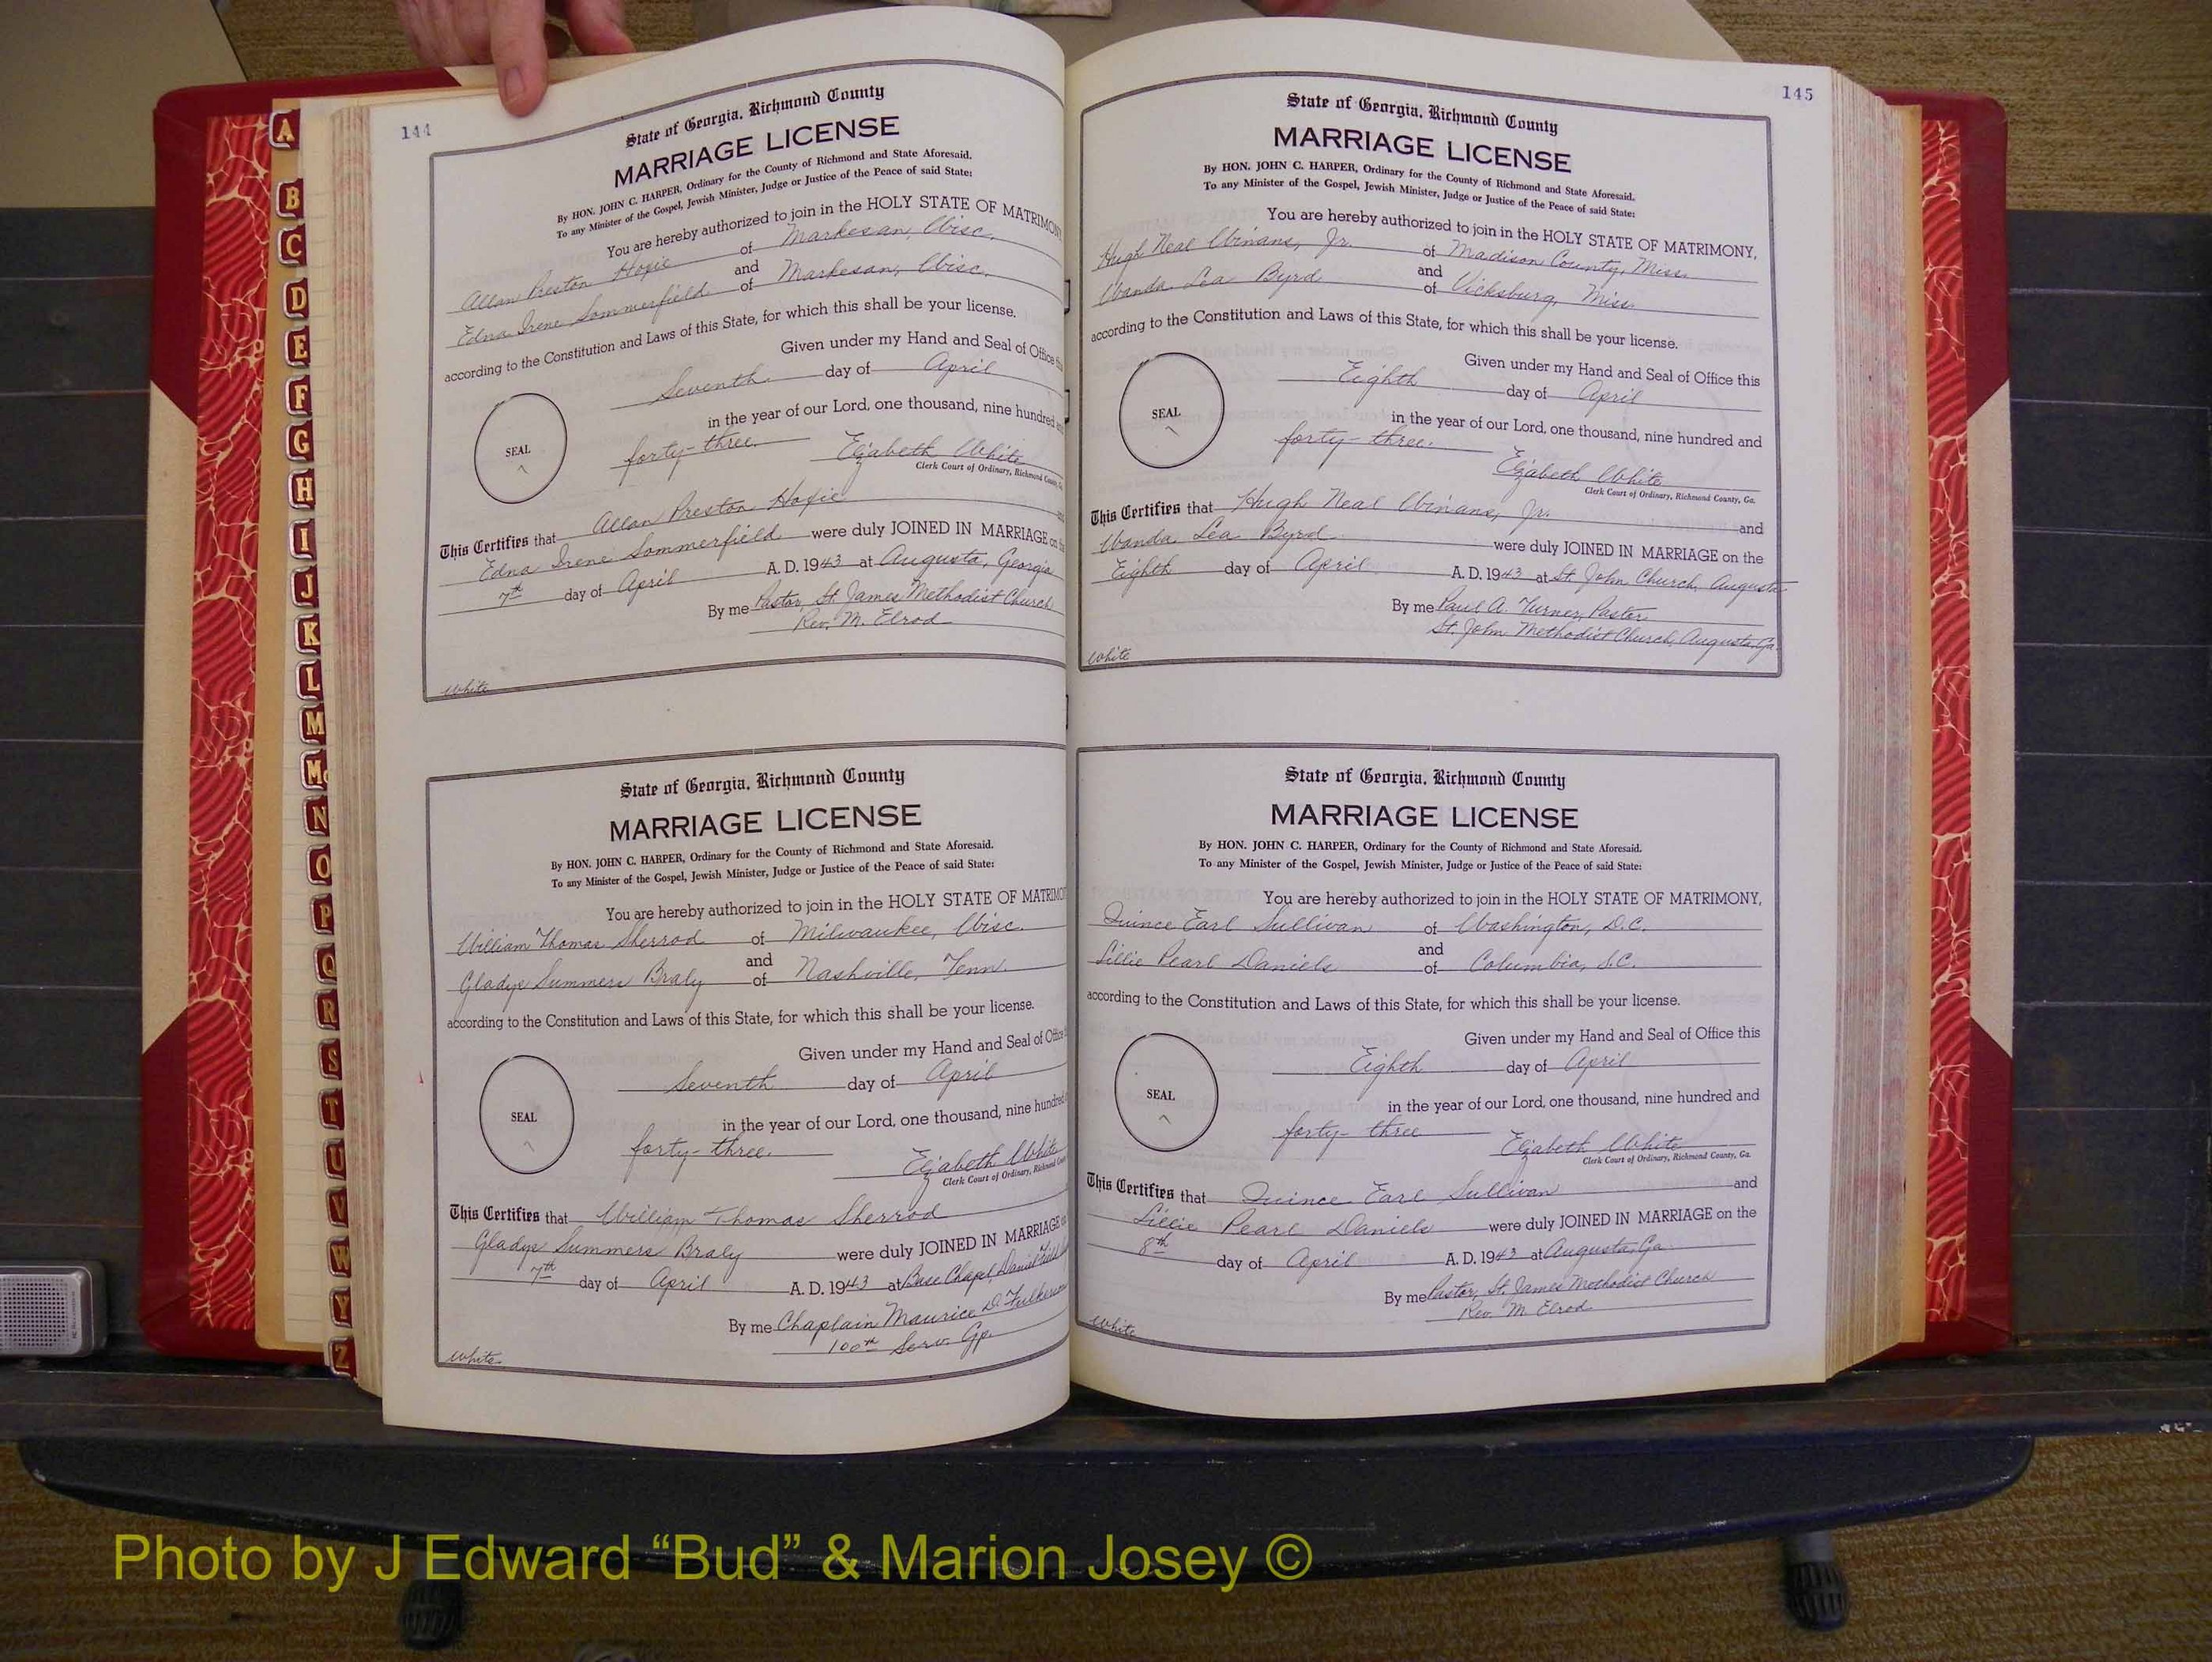 144
State of Georgia, Richmond County
MARRIAGE LICENSE
By HON. JOHN C. HARPER, Ordinary for the County of Richmond and State Aforesaid.
To any Minister of the Gospel, Jewish Minister, Judge or Justice of the Peace of said State:
You are hereby authorized to join in the HOLY STATE OF MATRIMONY
Allan Preston Hofie of Markesan, Wisc.
and
Edna Irene Sommerfield of Markesan, Wisc.
according to the Constitution and Laws of this State, for which this shall be your license.
Given under my Hand and Seal of Office
Seventh day of April
in the year of our Lord, one thousand, nine hundred
forty-three. Elizabeth White
SEAL
Clerk Court of Ordinary, Richmond County, Ga.
This Certifies that Allan Preston Hofie
Edna Irene Sommerfield were duly JOINED IN MARRIAGE on
7th day of April A. D. 1943 at Augusta, Georgia
By me Pastor, St. James Methodist Church
Rev. M. Elrod
White
State of Georgia, Richmond County
MARRIAGE LICENSE
By HON. JOHN C. HARPER, Ordinary for the County of Richmond and State Aforesaid.
To any Minister of the Gospel, Jewish Minister, Judge or Justice of the Peace of said State:
You are hereby authorized to join in the HOLY STATE OF MATRIMO
William Thomas Sherrod of Milwaukee, Wisc.
and
Gladys Summers Braly of Nashville, Tenn.
according to the Constitution and Laws of this State, for which this shall be your license.
Given under my Hand and Seal of Office
Seventh day of April
in the year of our Lord, one thousand, nine hundred
forty-three. Elizabeth White
SEAL
Clerk Court of Ordinary, Richmond
This Certifies that William Thomas Sherrod
Gladys Summers Braly were duly JOINED IN MARRIAGE
7th day of April A. D. 1943 at Base Chapel, Daniel Field
By me Chaplain Maurice D. Fulkerson
100th Serv. Gp.
White
145
State of Georgia, Richmond County
MARRIAGE LICENSE
By HON. JOHN C. HARPER, Ordinary for the County of Richmond and State Aforesaid.
To any Minister of the Gospel, Jewish Minister, Judge or Justice of the Peace of said State:
You are hereby authorized to join in the HOLY STATE OF MATRIMONY,
Hugh Neal Winans, Jr. of Madison County, Miss.
and
Wanda Lea Byrd of Vicksburg, Miss.
according to the Constitution and Laws of this State, for which this shall be your license.
Given under my Hand and Seal of Office this
Eighth day of April
in the year of our Lord, one thousand, nine hundred and
forty-three. Elizabeth White
SEAL
Clerk Court of Ordinary, Richmond County, Ga.
This Certifies that Hugh Neal Winans, Jr. and
Wanda Lea Byrd were duly JOINED IN MARRIAGE on the
Eighth day of April A. D. 1943 at St. John Church, Augusta
By me Paul A. Turner, Pastor
St. John Methodist Church, Augusta, Ga.
White
State of Georgia, Richmond County
MARRIAGE LICENSE
By HON. JOHN C. HARPER, Ordinary for the County of Richmond and State Aforesaid.
To any Minister of the Gospel, Jewish Minister, Judge or Justice of the Peace of said State:
You are hereby authorized to join in the HOLY STATE OF MATRIMONY,
Quince Earl Sullivan of Washington, D.C.
and
Lillie Pearl Daniels of Columbia, S.C.
according to the Constitution and Laws of this State, for which this shall be your license.
Given under my Hand and Seal of Office this
Eighth day of April
in the year of our Lord, one thousand, nine hundred and
forty-three Elizabeth White
SEAL
Clerk Court of Ordinary, Richmond County, Ga.
This Certifies that Quince Earl Sullivan and
Lillie Pearl Daniels were duly JOINED IN MARRIAGE on the
8th day of April A. D. 1943 at Augusta, Ga.
By me Pastor, St. James Methodist Church
Rev. M. Elrod
White
A
B
C
D
E
F
G
H
I
J
K
L
M
Mc
N
O
P
Q
R
S
T
U
V
W
Y
Z
Photo by J Edward “Bud” & Marion Josey ©